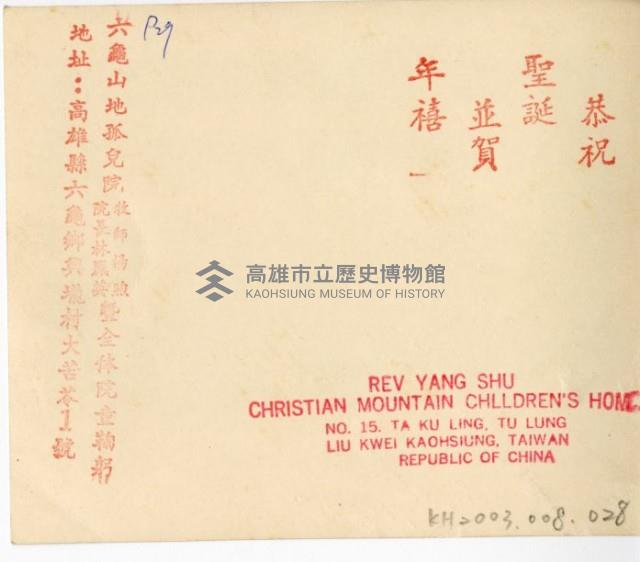 恭祝
聖誕
並賀
年禧
六龜山地孤兒院牧師楊煦院長林鳳英暨全体院童鞠躬
地址：高雄縣六龜鄉興壠村大苦苓1號
P29
高雄市立歷史博物館
KAOHSIUNG MUSEUM OF HISTORY
REV YANG SHU
CHRISTIAN MOUNTAIN CHLLDREN'S HOME
NO. 15. TA KU LING, TU LUNG
LIU KWEI KAOHSIUNG, TAIWAN
REPUBLIC OF CHINA
KH2003.008.028